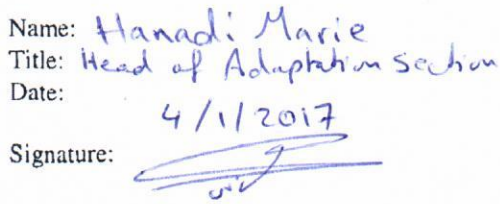 Name: Hanadi Marie
Title: Head of Adaptation section
Date:
4/1/2017
Signature: